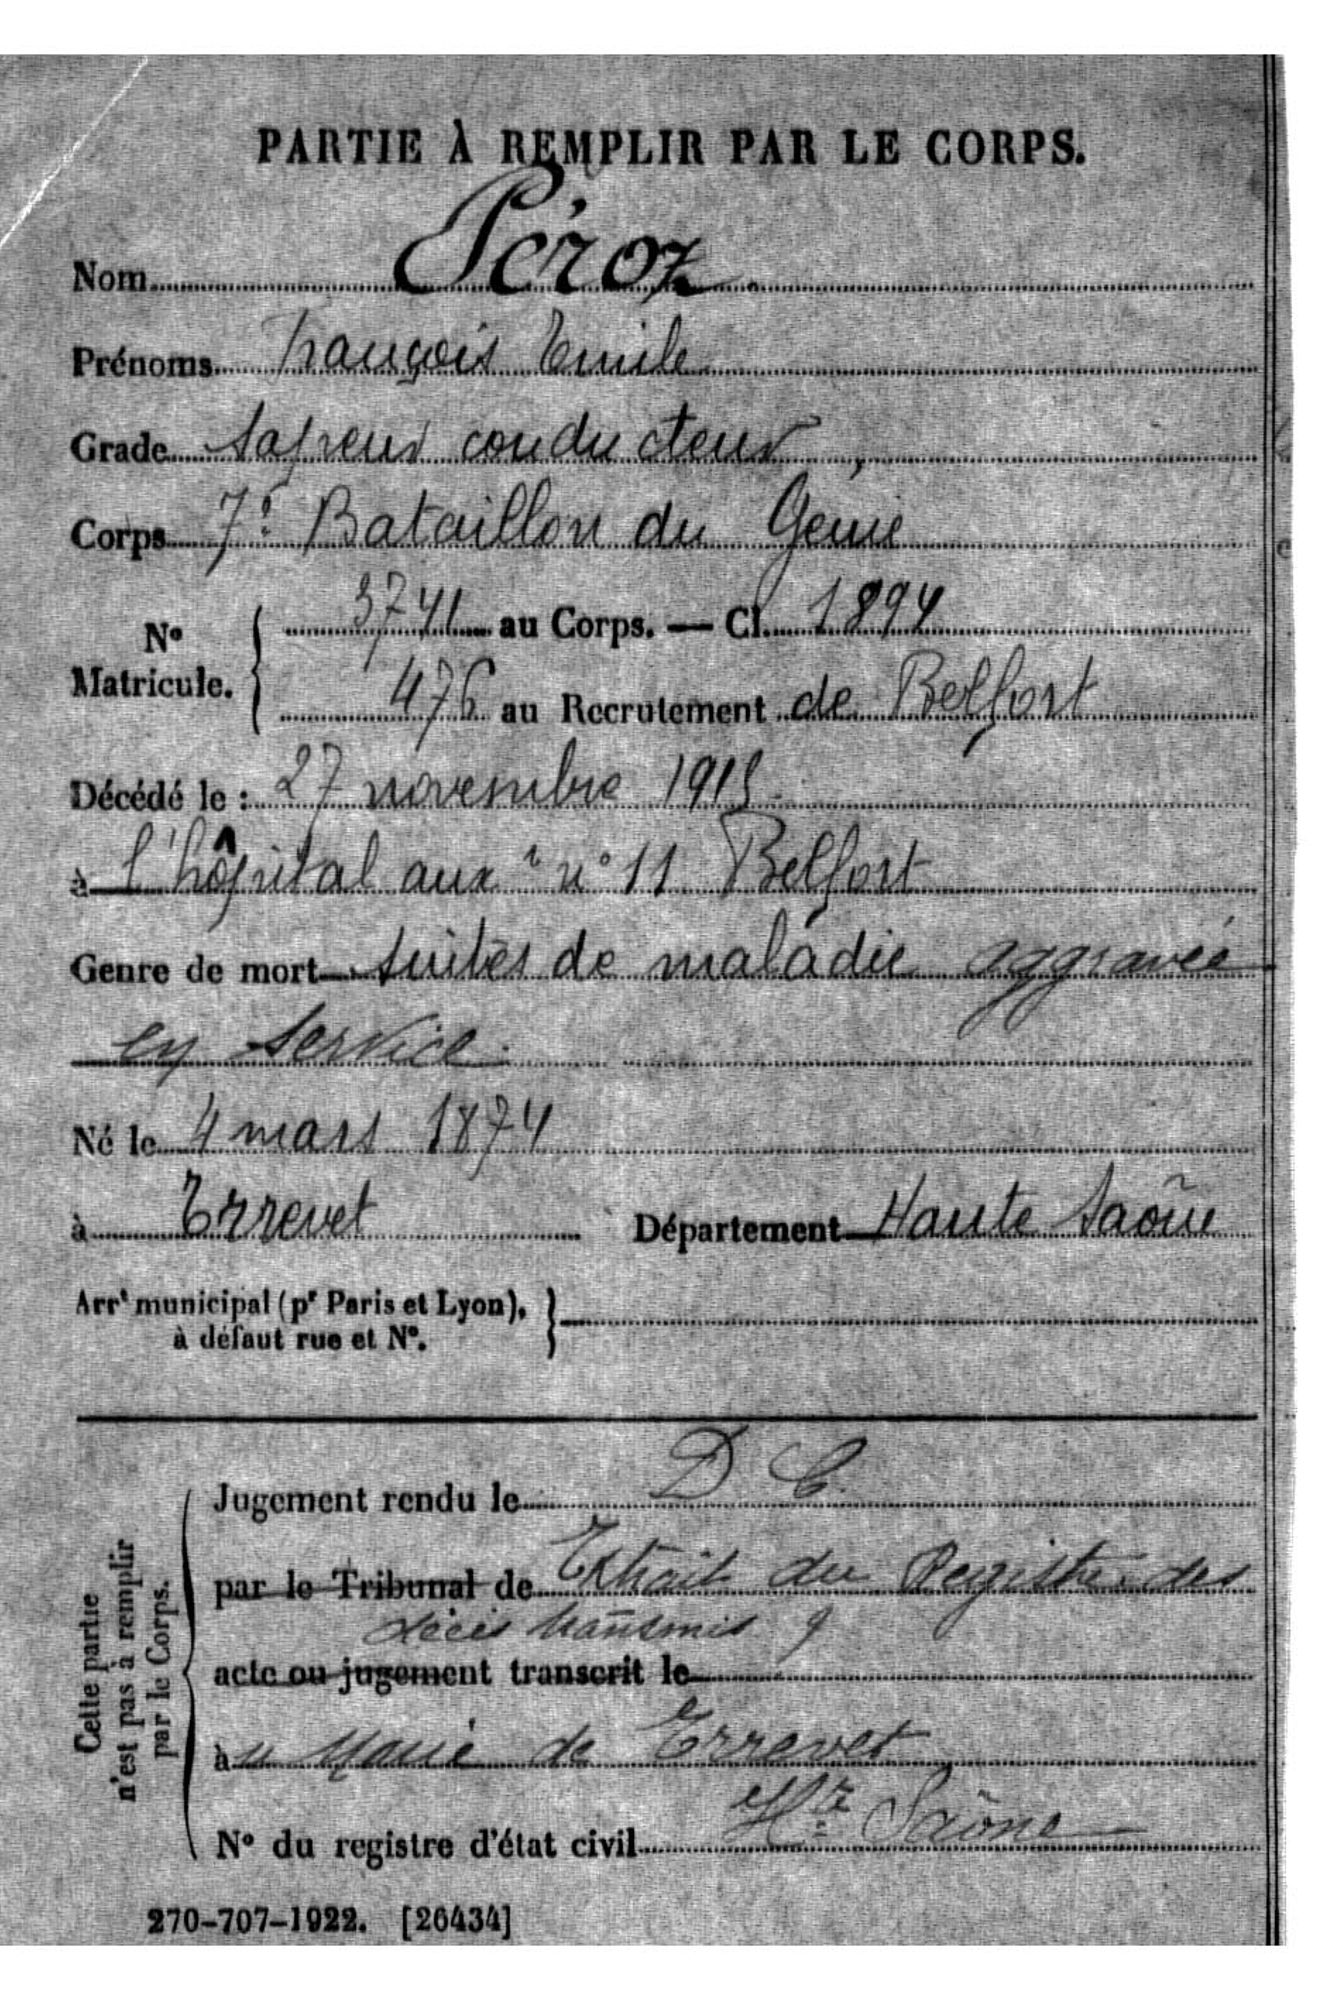 PARTIE À REMPLIR PAR LE CORPS.
Nom Péroz.
Prénoms François Emile
Grade Sapeur conducteur,
Corps 7e Bataillon du Génie
No Matricule. { 3741 au Corps. — Cl. 1894
476 au Recrutement de Belfort
Décédé le : 27 novembre 1915
à l'hôpital auxre n° 11 Belfort
Genre de mort suites de maladie aggravée
en service.
Né le 4 mars 1874
à Errevet Département Haute Saône
Arrt municipal (pr Paris et Lyon), }
à défaut rue et No.
Cette partie n'est pas à remplir par le Corps.
Jugement rendu le D C.
par le Tribunal de Extrait du Registre des
décès transmis
acte ou jugement transcrit le
à de Errevet
Hte Saône
No du registre d'état civil
270-707-1922. [26434]